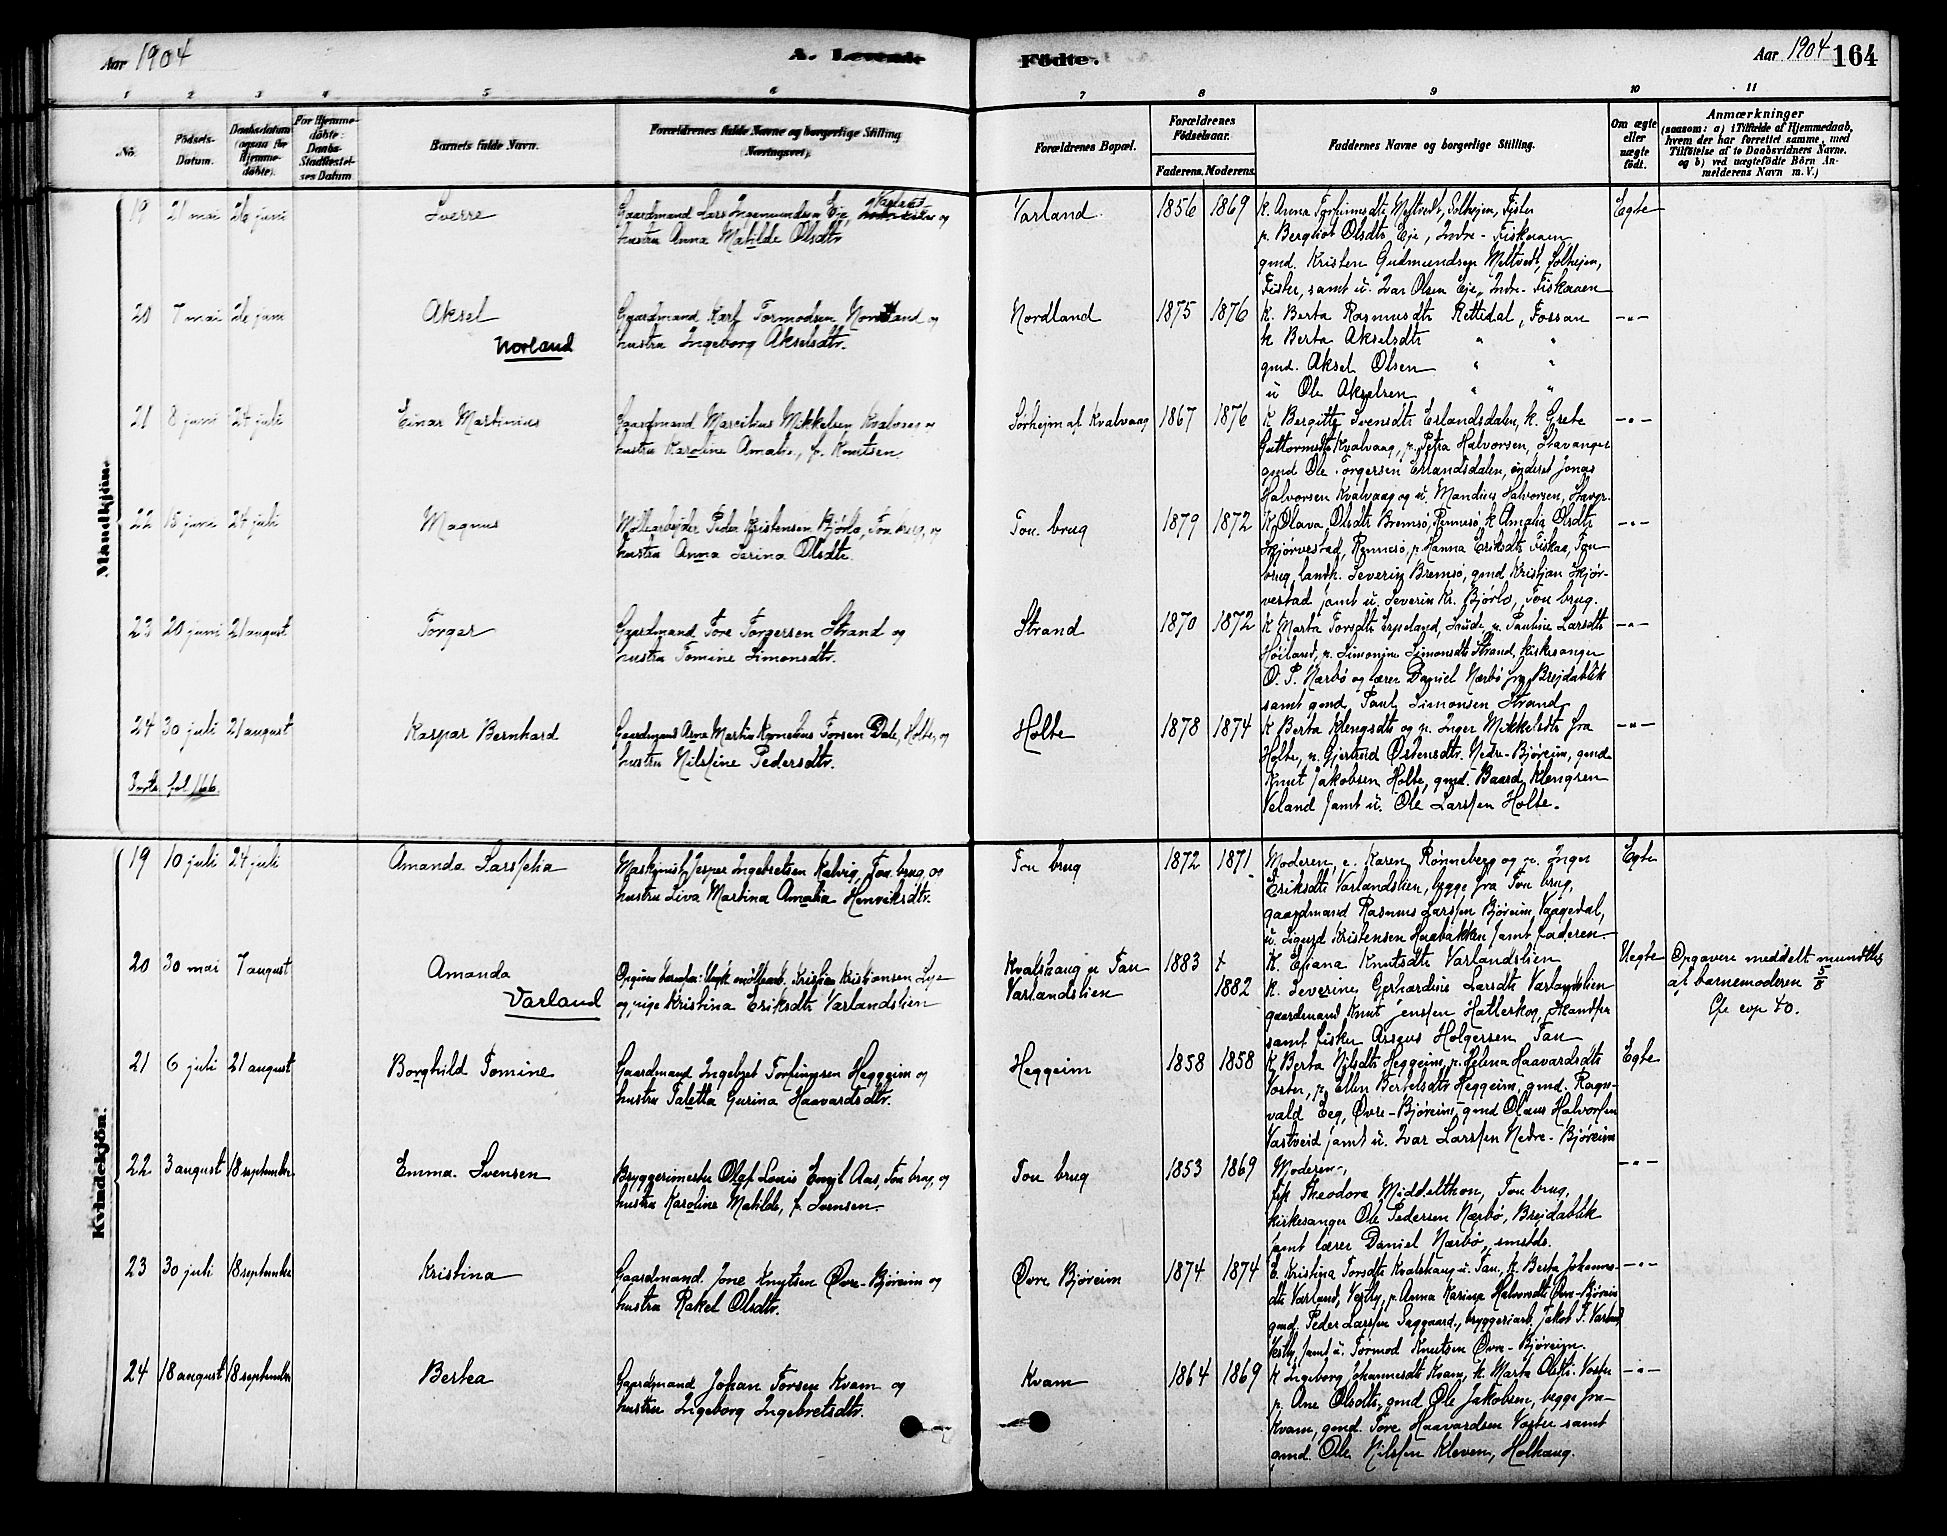 Aar 1904
A. Levende
Födte.
Aar 1904 164
1 2 3 4 5 6 7 8 9 10 11
No. Födsels-Datum. Daabsdatum (ogsaa for Hjemmedöbte). For Hjemmedöbte: Daabs-Stadfæstelses Datum. Barnets fulde Navn. Forældrenes fulde Navne og borgerlige Stilling (Næringsvei). Forældrenes Bopæl. Forældrenes Födselsaar. Faderens. Moderens. Faddernes Navne og borgerlige Stilling. Om ægte eller uægte födt. Anmærkninger (saasom: a) i Tilfælde af Hjemmedaab, hvem der har forrettet samme, med Tilföielse af to Daabsvidners Navne. og b) ved uægtefödte Börn Anmelderens Navn m. V.)
Mandkjön.
19 21 mai 26 juni Sverre Gaardmand Lars Ingemundsen Eje, Varland og Varland. 1856 1869 k. Anna Torfinnsdtr Meltvedt, Solhejm, Fister Egte
hustru Anna Matilde Olsdtr p. Bergliot Olsdtr Eje, Indre-Fiskaaen
gmd. Kristen Gudmundsen Meltvedt, Solhejm,
Fister, samt u. Ivar Olsen Eje, Indre-Fiskaaen
20 7 mai 26 juni Aksel Gaardmand Karl Tormodsen Nordland og Nordland 1875 1876 k. Berta Rasmusdtr Rettedal, Fossan -"-
Norland hustru Ingeborg Akselsdtr. k Berta Akselsdtr " "
gmd. Aksel Olsen " "
u Ole Akselsen " "
21 8 juni 24 juli Einar Martinius Gaardmand Marselius Mikkelsen Kvalvaag og Sørhejm af Kvalvaag 1867 1876 k Bergitte Svensdtr Erlandsdalen, k. Grete -"-
hustru Karoline Amalie, f. Knutsen. Guttormsdtr Kvalvaag, p. Petra Halvorsen, Stavanger
gmd Ole Torgersen Erlandsdalen, inderst Jonas
Halvorsen Kvalvaag og u. Mandius Halvorsen, Stavgr.
22 15 juni 24 juli Magnus Møllearbejder Peder Kristensen Bjørlo, Tou brug, og Tou. brug 1879 1872 K Olava Olsdtr Bremsø, Rennesø, k Amalia Olsdtr -"-
hustru Anna Serina Olsdtr. Skjørvestad, Rennesø, p. Hanna Eriksdtr Fiskaa, Tou
brug, landh. Severin Bremsø, gmd Kristjan Skjør-
vestad samt u. Severin Kr. Bjørlo, Tou brug.
23 20 juni 21 august Torger Gaardmand Tore Torgersen Strand og Strand 1870 1872 k Marta Torsdtr , p. Pauline Larsdtr -"-
hustru Tomine Simonsdtr. Høiland, p. Simonine Simonsdtr Strand, kirkesanger
O. P. Nærbø og lærer Daniel Nærbø fra Brejdablik
samt gmd. Paul Simonsen Strand
24 30 juli 21 august Kaspar Bernhard Gaardmand Arne Martin Kornelius Torsen Dale, Holte, og Holte 1878 1874 k Berta Klengsdtr og p. Inger Mikkelsdtr fra -"-
hustru Nilsine Pedersdtr. Holte, p. Gjertrud Østensdtr. Nedre-Bjøreim, gmd
Forts. fol 166. Knut Jakobsen Holte, gmd. Baard Klengsen
Veland samt u. Ole Larssen Holte.
Kvindekjön.
19 10 juli 24 juli Amanda Larssylia Maskinist Jesper Ingebretsen Kalvig, Tou brug, og Tou brug 1872 1871 Moderen, e. Karen Rønneberg og p. Inger Egte
hustru Liva Martina Amalia Henriksdtr. Eriksdtr Varlandslien, begge fra Tou brug,
gaardmand Rasmus Larssen Bjøreim, Vaagedal,
u. Sigurd Kristensen Haabakken samt Faderen.
20 30 mai 7 august Amanda Kristian Kristiansen Kvalshaug u Tau 1883 + K. Eliana Knutsdtr Varlandslien Uegte Opgaven meddelt mundtlig
Varland og pige Kristina Eriksdtr Varlandslien Varlandslien 1882 k. Severine Gerhardine Larsdtr Varlandslien af barnemoderen 5/8
gaardmand Knut Jenssen Hatleskog, Cfr cop 40.
samt fisker Holgersen Tau
21 6 juli 21 august Borghild Tomine Gaardmand Ingebret Torfinnsen Heggeim og Heggeim 1858 1858 k Berta Nilsdtr Heggeim, p. Helena Haavardsdtr Egte
hustru Taletta Gurina Haavardsdtr. Voster, p. Ellen Bertelsdtr Heggeim, gmd. Ragn-
vald Eeg, Øvre-Bjøreim, gmd Olaus Halvorsen
Vastveid samt u. Ivar Larssen Nedre-Bjøreim
22 3 august 18 september Emma Svensen Bryggerimester Olaf Louis Emil Aas, Tou brug, og Tou brug 1853 1869 Moderen, -"-
hustru Karoline Matilde, f. Svensen. frk Theodora Middelthon, Tou brug,
kirkesanger Ole Pedersen Nærbø, Brejdablik
samt lærer Daniel Nærbø, smstds.
23 30 juli 18 september Kristina Gaardmand Jone Knutsen Øvre-Bjøreim og Øvre Bjøreim 1874 1874 E. Kristina Torsdtr Kvalshaug u. Tau, k Berta Johanns- -"-
hustru Rakel Olsdtr. dtr Varland, Vestly, p Anna Karina Halvorsdtr Øvre-Bjøreim
gmd. Peder Larssen Saggaard, bryggeriarb. Jakob T. Varland
Vestly, samt u. Tormod Knutsen Øvre-Bjøreim.
24 18 august 18 september Bertea Gaardmand Johan Torsen Kvam og Kvam 1864 1869 k Ingeborg Johannesdtr Kvam, k. Marta Olsdtr. Voster -"-
hustru Ingeborg Ingebretsdtr. p. Ane Olsdtr, gmd Ole Jakobsen, begge fra
Kvam, gmd. Tore Haavardsen Voster samt
gmd. Ole Nilssen Kleven, Holhaug.